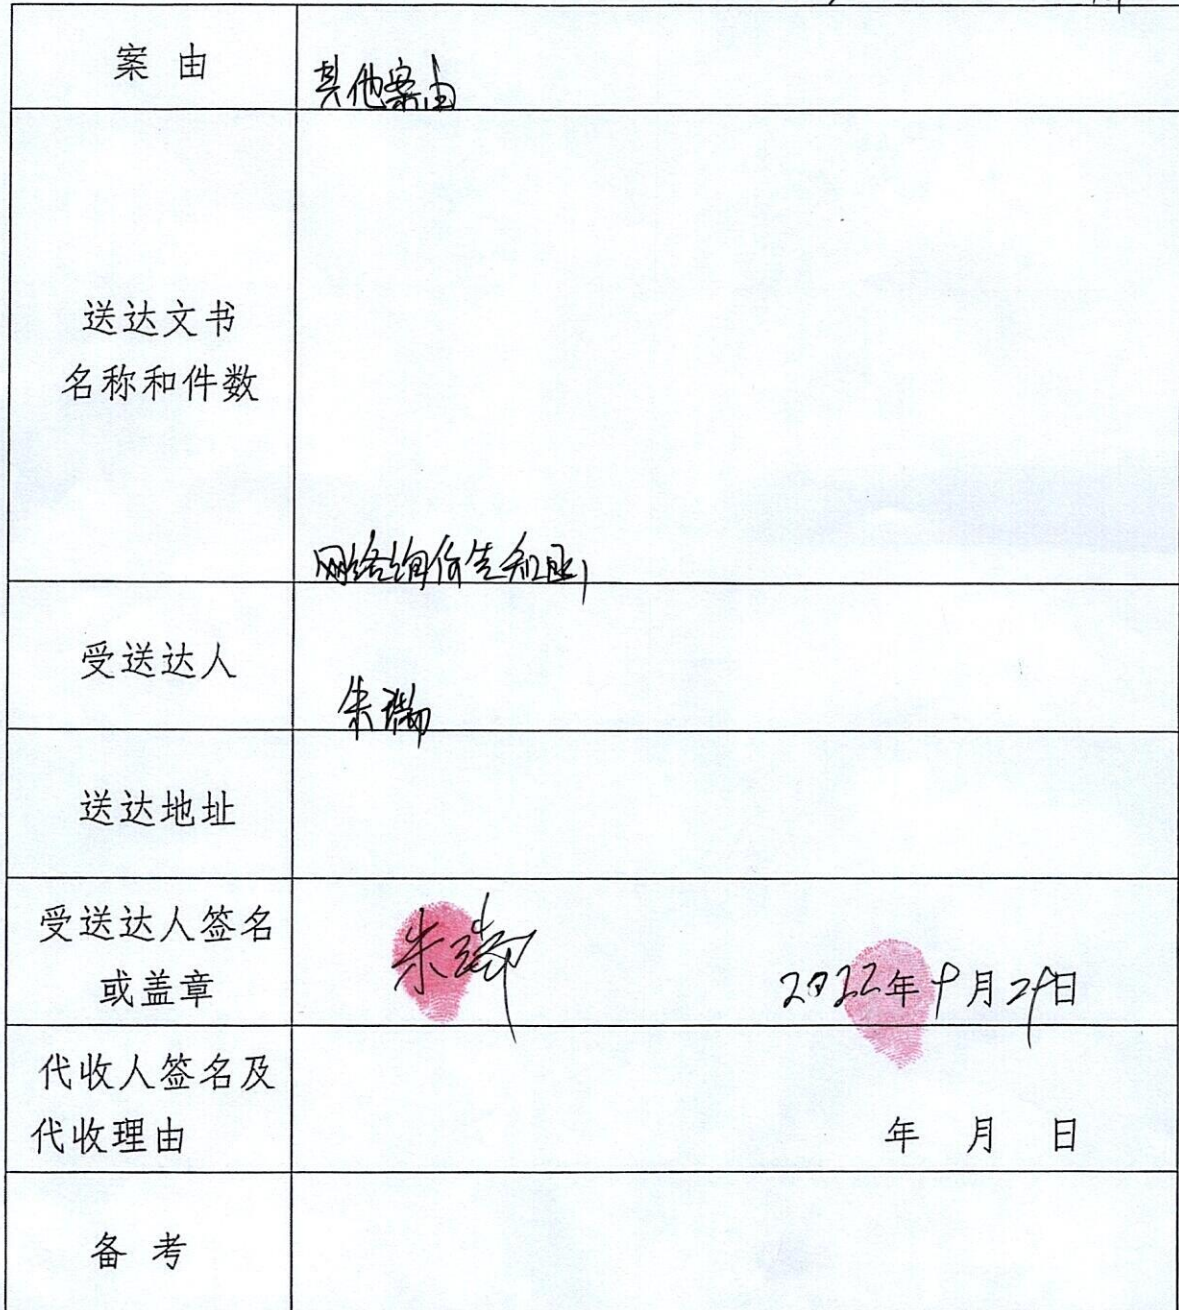 案由
其他案由
送达文书
名称和件数
网络询价告知书
受送达人
朱瑞
送达地址
受送达人签名
或盖章
朱瑞
2022年9月29日
代收人签名及
代收理由
年 月 日
备考